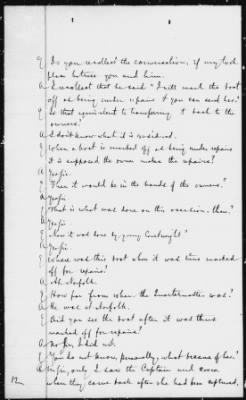 Q Do you recollect the conversation, if any took
place between you and him.
A I recollect that he said "I will mark the boat
off as being under repairs & you can send her."
Q Is that equivalent to transferring it back to the
owners?
A I don't know what it is considered.
Q When a boat is marked off as being under repairs
it is supposed the owner makes the repairs?
A Yes sir.
Q Then it would be in the hands of the owners."
A Yes sir.
Q That is what was done on this occasion, then?
A Yes sir.
Q Now it was done by young Cartwright?
A Yes sir.
Q Where was this boat when it was thus marked
off for repairs?
A At Norfolk.
Q How far from where the Quartermaster was?
A He was at Norfolk.
Q Did you see the boat after it was thus
marked off for repairs?
A No sir, I did not.
Q You do not know, personally, what became of her?
A No sir, only I saw the Captain and
when they came back after she had been captured,